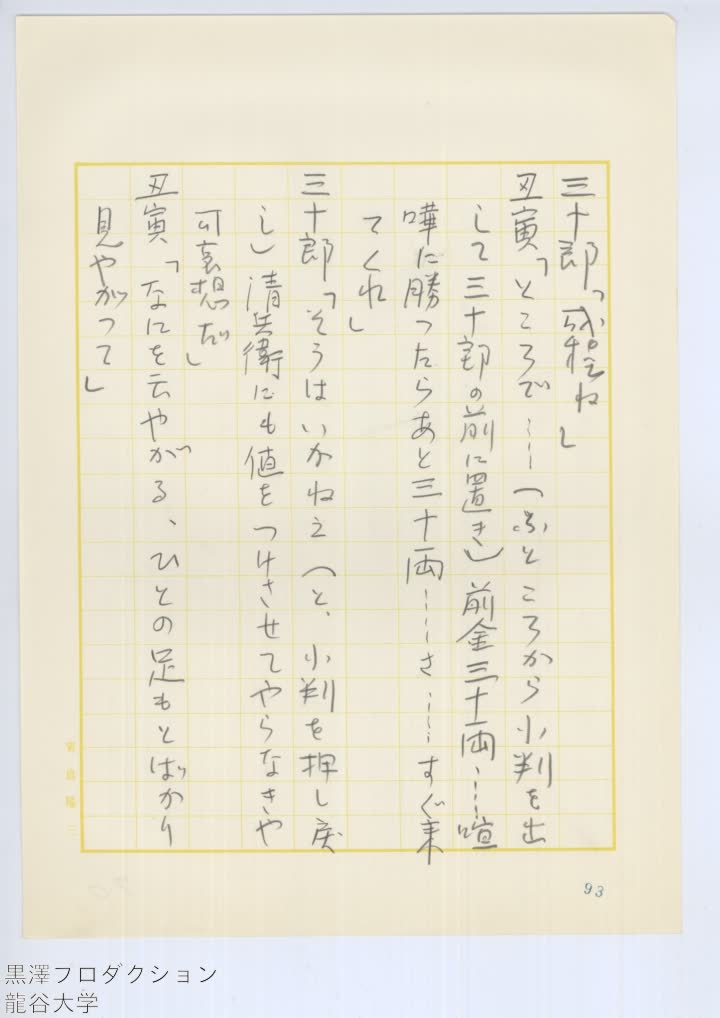 三十郎「成程ね」
丑寅「ところで……(ふところから小判を出
して三十郎の前に置き)前金三十両……喧
嘩に勝ったらあと三十両……さ……すぐ来
てくれ」
三十郎「そうはいかねえ(と、小判を押し戻
し)清兵衛にも値をつけさせてやらなきや
可哀想だ」
丑寅「なにを云やがる、ひとの足もとばかり
見やがつて」
93
黒澤プロダクション
龍谷大学